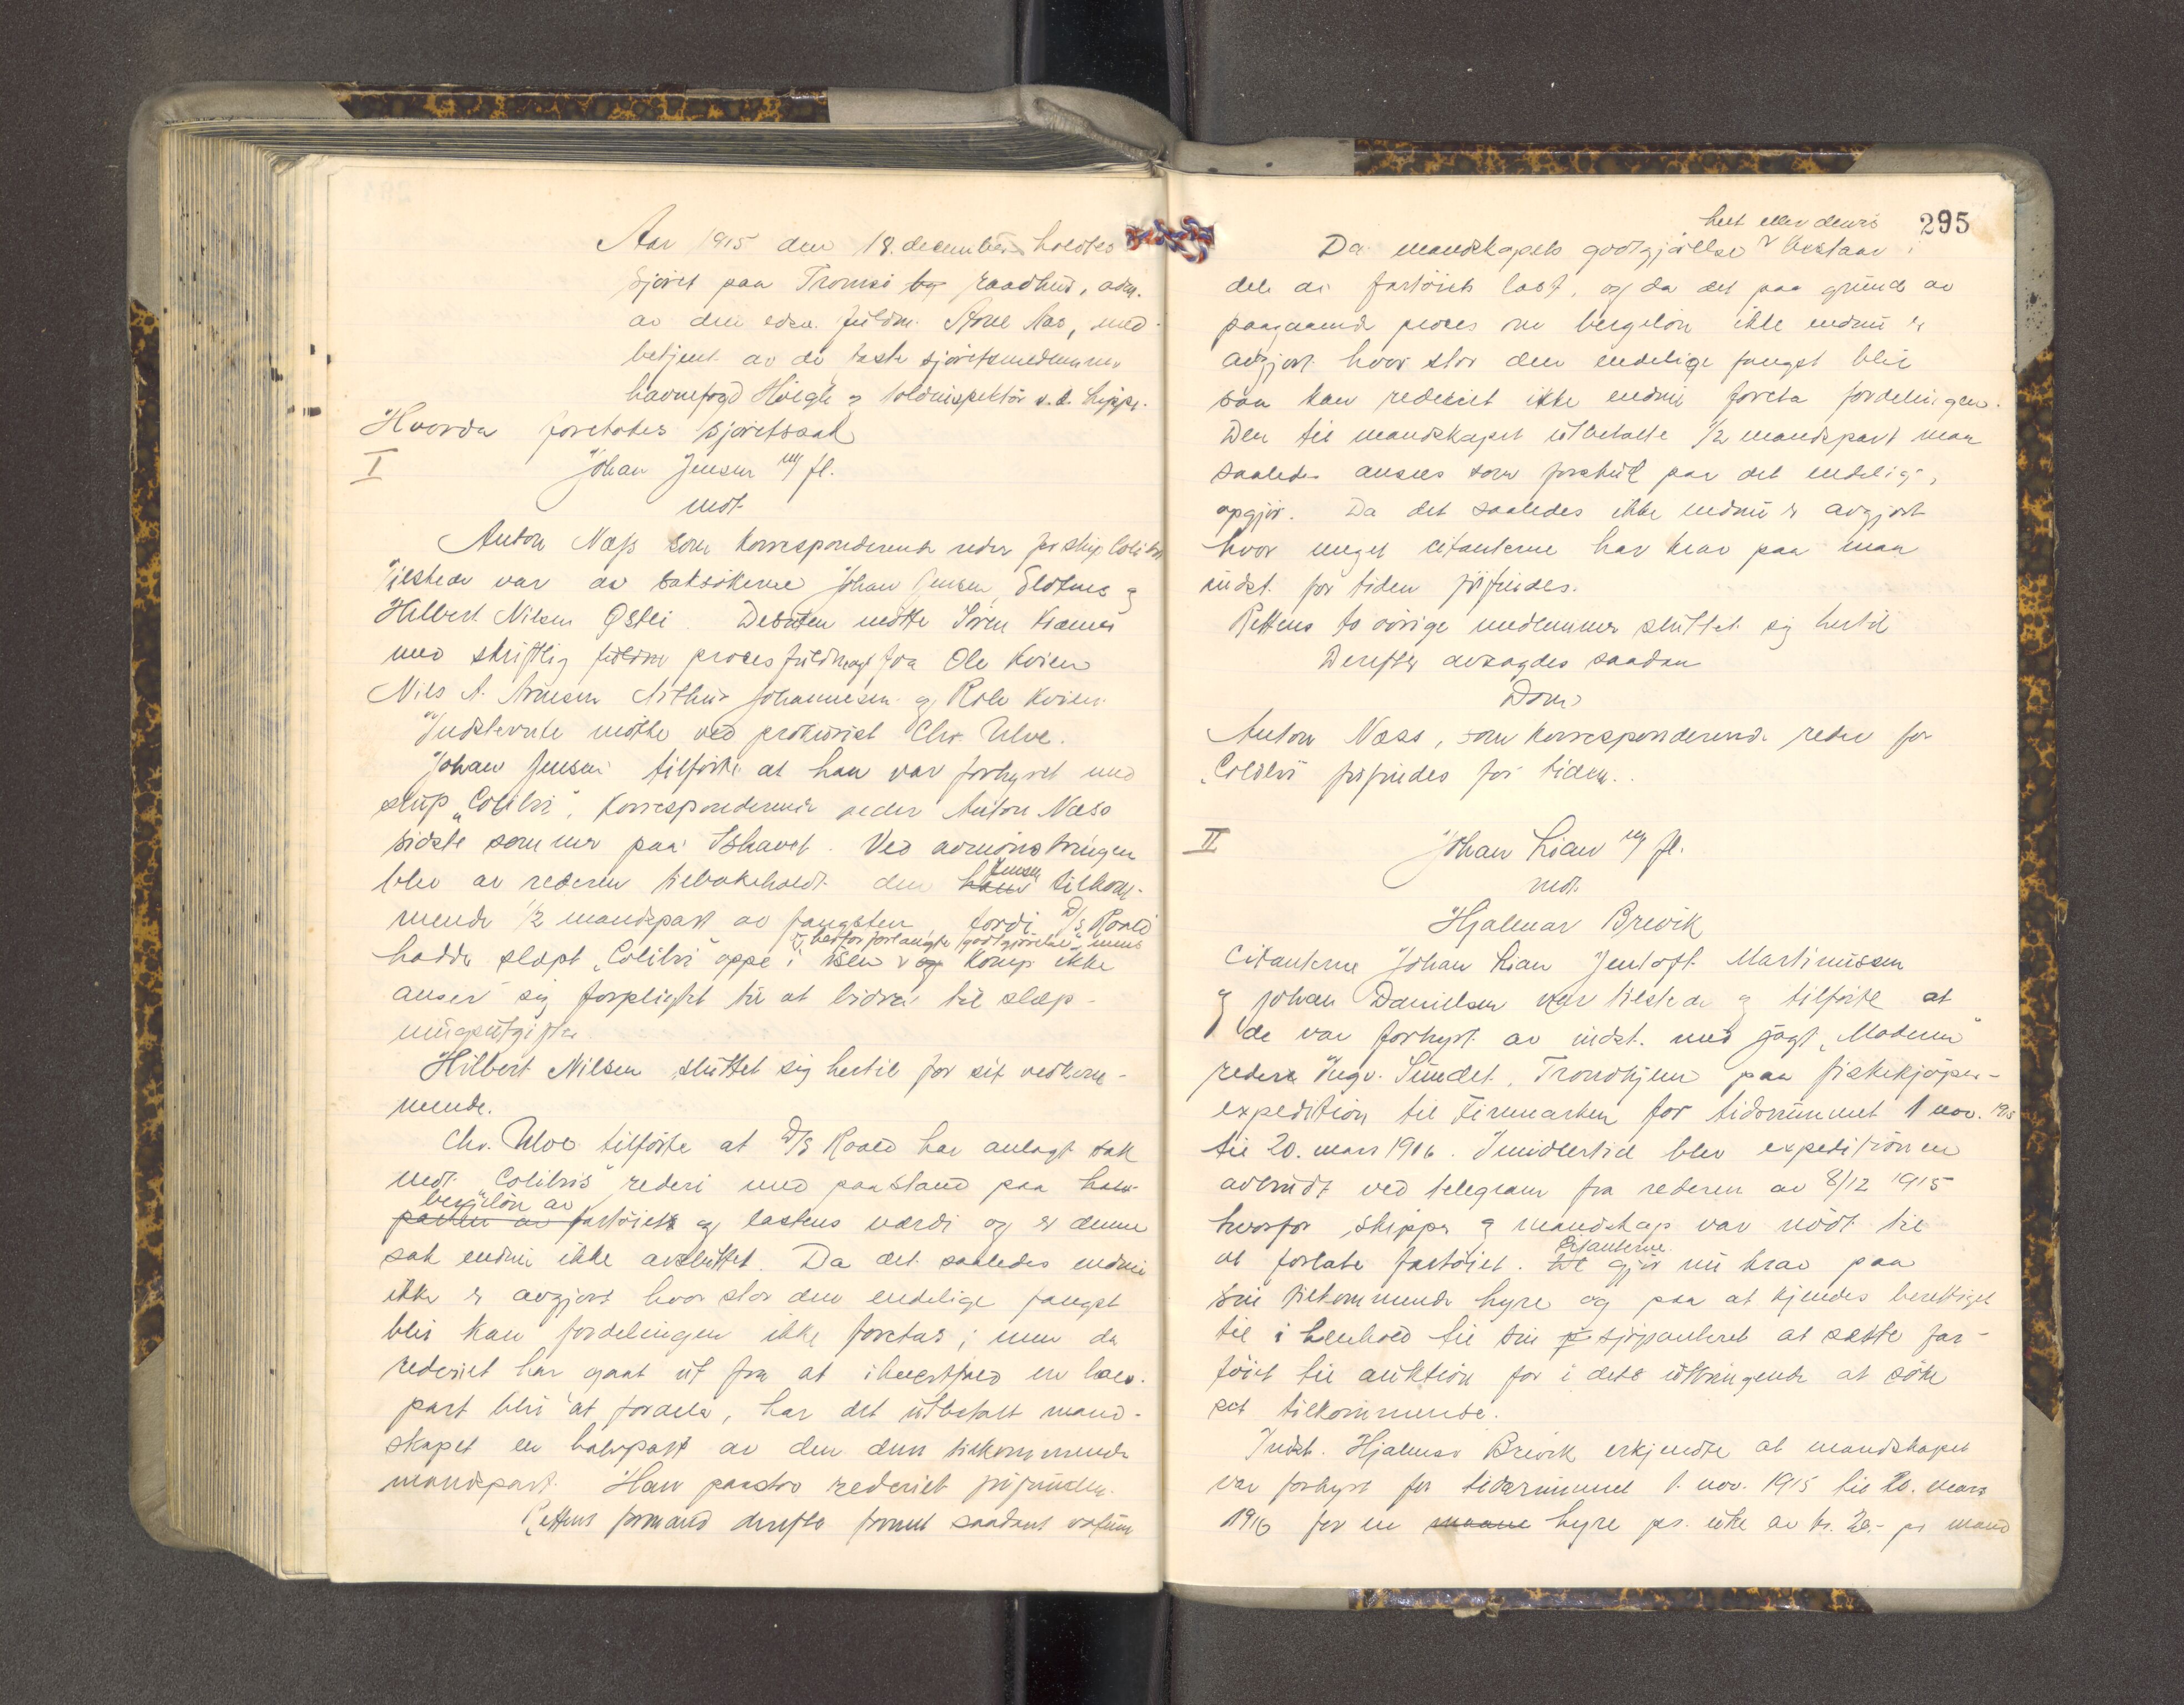 Aar 1915 den 18. december holdtes
sjøret paa Tromsø by raadhus, adm.
av den edsv. fuldm. , med-
betjent av de faste sjøretsmedlemmer
havnefogd Høegh og toldinspektør
Hvorda foretokes sjøretssak
I
Johan Jensen m fl.
mot
Anton Næss som korresponderende reder for skip Colibri
Tilstede var av saksøkerne Johan Jensen, og
Hilbert Nilsen . Desuten møtte
med skriftlig fuldm procesfuldmagt fra Ole Kvien
Nils A. Arnesen Arthur Johannesen og Kvien.
Indstevnte møtte ved prokurist Chr. Ulve.
Johan Jensen tilførte at han var forhyret med
skip „Colibri“, korresponderende reder Anton Næss
sidste sommer paa Ishavet. Ved avmønstringen
blev av rederen tilbakeholdt den hans Jensen tilkom-
mende 1/2 mandspart av fangsten fordi D/S Roald
v. herfor forlangte godtgjørelse, mens
hadde slæpt „Colibri“ oppe i isen v og komp ikke
anser sig forpligtet til at bidra til slæp-
ningsutgifter.
Hilbert Nilsen sluttet sig hertil for sit vedkom-
mende.
Chr. Ulve tilførte at D/S Roald har anlagt sak
mot „Colibris“ rederi med paastand paa halv-
bergeløn av
parten av fartøiets og lastens værdi og er denne
sak endnu ikke avsluttet. Da det saaledes endnu
ikke er avgjort hvor stor den endelige fangst
blir kan fordelingen ikke foretas; men da
rederiet har gaat ut fra at ihvertfald en halv-
part blir at fordele, har det utbetalt mand-
skapet en halvpart av den dem tilkommende
mandspart. Han paastod rederiet frifunden.
Rettens formand derefter fornut saadant votum

295
helt eller delvis
Da mandskapets godtgjørelse v bestaar i
dele av fartøiets last, og da det paa grund av
paagaaende proces om bergeløn ikke endnu er
avgjort hvor stor den endelige fangst blir
saa kan rederiet ikke endnu foreta fordelingen.
Den til mandskapet utbetalte 1/2 mandspart maa
saaledes ansees som forskud paa det endelige
opgjør. Da det saaledes ikke endnu er avgjort
hvor meget citanterne har krav paa maa
indst. for tiden frifindes.
Rettens to øvrige medlemmer sluttet sig hertil
Derefter avsagdes saadan
Dom
Anton Næss, som korresponderende reder for
„Colibri“ frifindes for tiden.
II
Johan Lian m fl.
mot
Hjalmar Brevik
Citanterne Johan Lian Jentoft Martinussen
og Johan Danielsen var tilstede og tilførte at
de var forhyrt av indst. med jagt „Modum“
reder Ingv. Sundet, Trondhjem paa fiskekjøps-
expedition til Finmarken for tidsrummet 1 nov. 1915
til 20. mars 1916. Imidlertid blev expeditionen
avbrudt ved telegram fra rederen av 8/12 1915
hvorfor skipper og mandskap var nødt til
at forlate fartøiet. De Citanterne gjør nu krav paa
sin tilkommende hyre og paa at kjendes berettiget
til i henhold til sin p sjøpanteret at sætte far-
tøiet til auktion for i dets utbringende at søke
sit tilkommende.
Indst. Hjalmar Brevik erkjendte at mandskapet
var forhyrt for tidsrummet 1. nov. 1915 til 20. mars
1916 for en maane hyre pr. uke av kr. 20.- pr mand